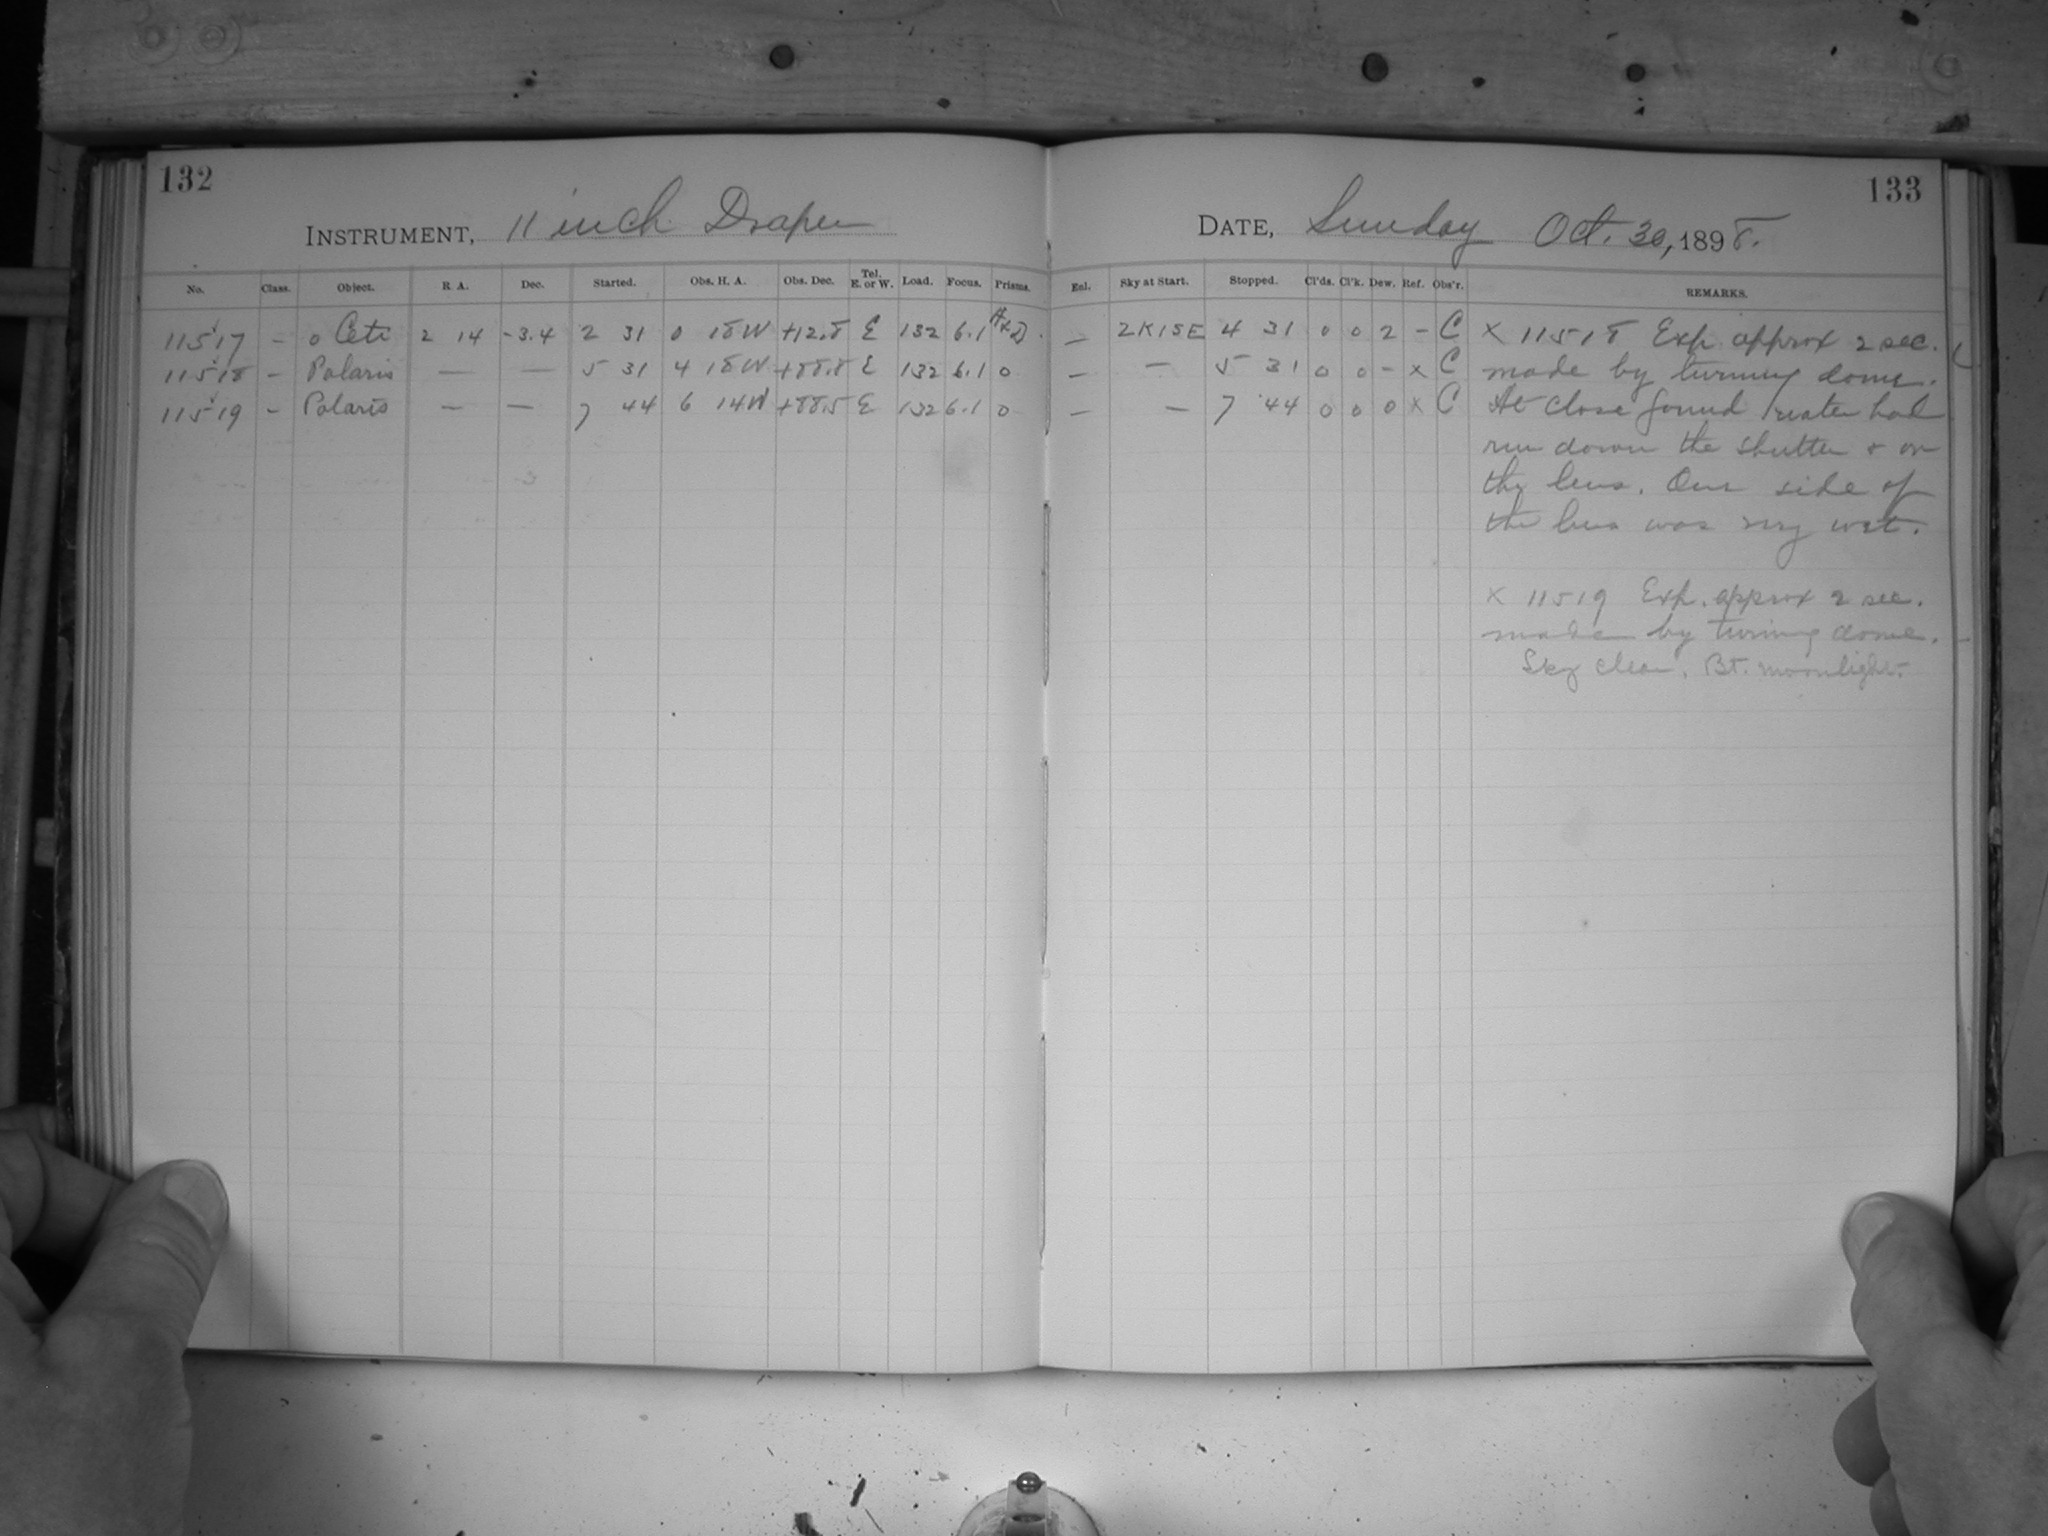 132
INSTRUMENT, 11 inch Draper
No. Class. Object. R A. Dec. Started. Obs. H. A. Obs. Dec. Tel. E. or W. Load. Focus. Prisms.
11517 - o Ceti 2 14 -3.4 2 31 0 18W +12.8 E 132 6.1 A+D.
11518 - Polaris — — 5 31 4 18W +88.8 E 132 6.1 0
11519 - Polaris — — 7 44 6 14W +88.5 E 132 6.1 0
133
DATE, Sunday Oct. 30, 1898.
Enl. Sky at Start. Stopped. Cl'ds. Cl'k. Dew. Ref. Obs'r. REMARKS.
— 2K15E 4 31 0 0 2 - C × 11518 Exp. approx 2 sec.
— — 5 31 0 0 - × C made by turning dome.
— — 7 44 0 0 0 × C At close found water had
run down the shutter & on
the lens. One side of
the lens was very wet.
× 11519 Exp. approx 2 sec.
made by turning dome.
Sky clear. Bt. moonlight.